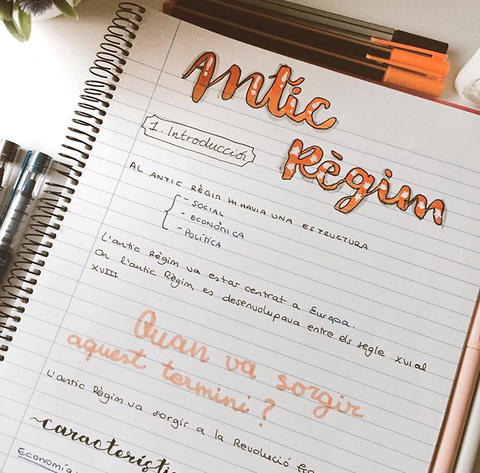 Antic
Règim
1. Introducció
AL ANTIC RÈGIM HI HAVIA UNA ESTRUCTURA
- SOCIAL
- ECONÒMICA
- POLÍTICA
L'antic Règim va estar centrat a Europa.
On l'antic Règim es desenvolupava entre els segle XVI al
XVIII
Quan va sorgir
aquest termini?
L'antic Règim va sorgir a la Revolució
Economia: